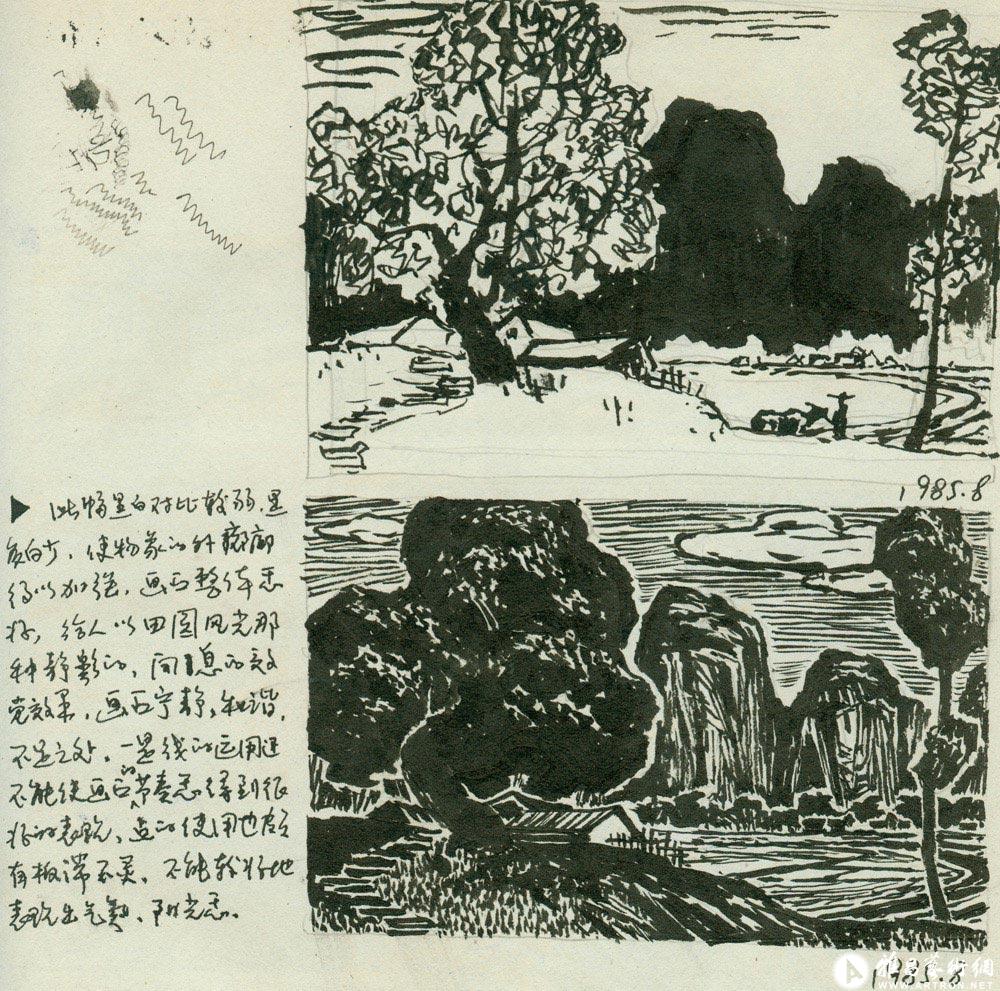 1985.8
▶ 此幅黑白对比较弱,黑
多白少,使物象的外轮廓
得以加强,画面整体感
好,给人以田园风光那
种静谧的,闲息的视
觉效果,画面宁静,和谐,
不足之处,一是线的运用还
不能使画面的节奏感得到很
好的表现,点的使用也颇
有板滞不灵,不能较好地
表现出空气、阳光感。
1985.8
雅昌艺術網
WWW.ARTRON.NET